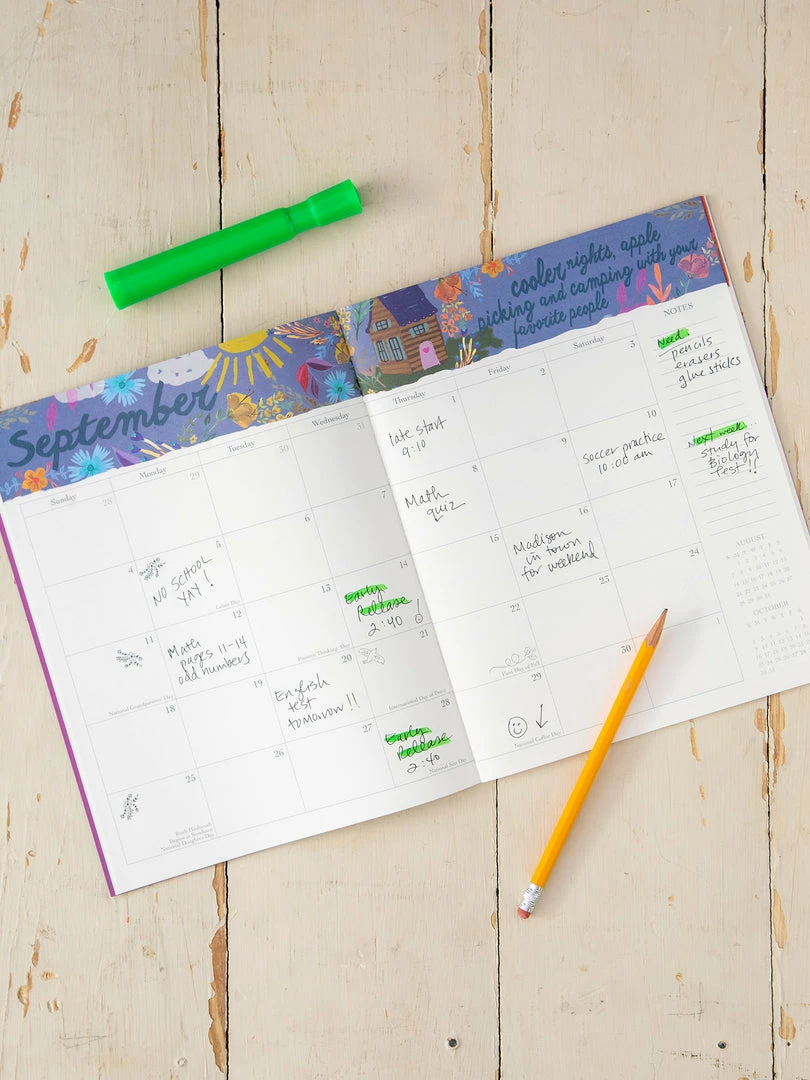 September
cooler nights, apple
picking and camping with your
favorite people
Sunday
Monday
Tuesday
Wednesday
Thursday
Friday
Saturday
NOTES
28
29
30
31
1
late start
9:10
2
3
4
5
NO SCHOOL
YAY!
Labor Day
6
7
8
Math
quiz
9
10
soccer practice
10:00 am
11
National Grandparents Day
12
Math
pages 11-14
odd numbers
13
Positive Thinking Day
14
Early
Release
2:40 !
15
16
Madison
in town
for weekend
17
18
19
20
English
test
tomorrow!!
21
International Day of Peace
22
First Day of Fall
23
24
25
Rosh Hashanah
Begins at Sundown
National Daughters Day
26
27
28
Early
Release
2:40
National Son Day
29
National Coffee Day
30
1
Need
pencils
erasers
glue sticks
Next week
study for
Biology
test!!
AUGUST
OCTOBER